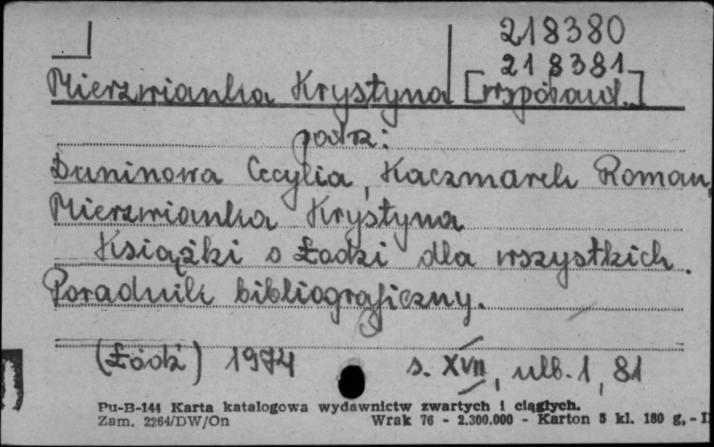 218380
218381
Mierzwianka Krystyna [współaut.]
patrz:
Duninowa Cecylia, Kaczmarek Roman,
Mierzwianka Krystyna
Książki o Łodzi dla wszystkich.
Poradnik bibliograficzny.
(Łódź) 1974 s. XVII, nlb. 1, 81
Pu-B-144 Karta katalogowa wydawnictw zwartych i ciągłych.
Zam. 2264/DW/On Wrak 76 - 2.300.000 - Karton 5 kl. 180 g, - I